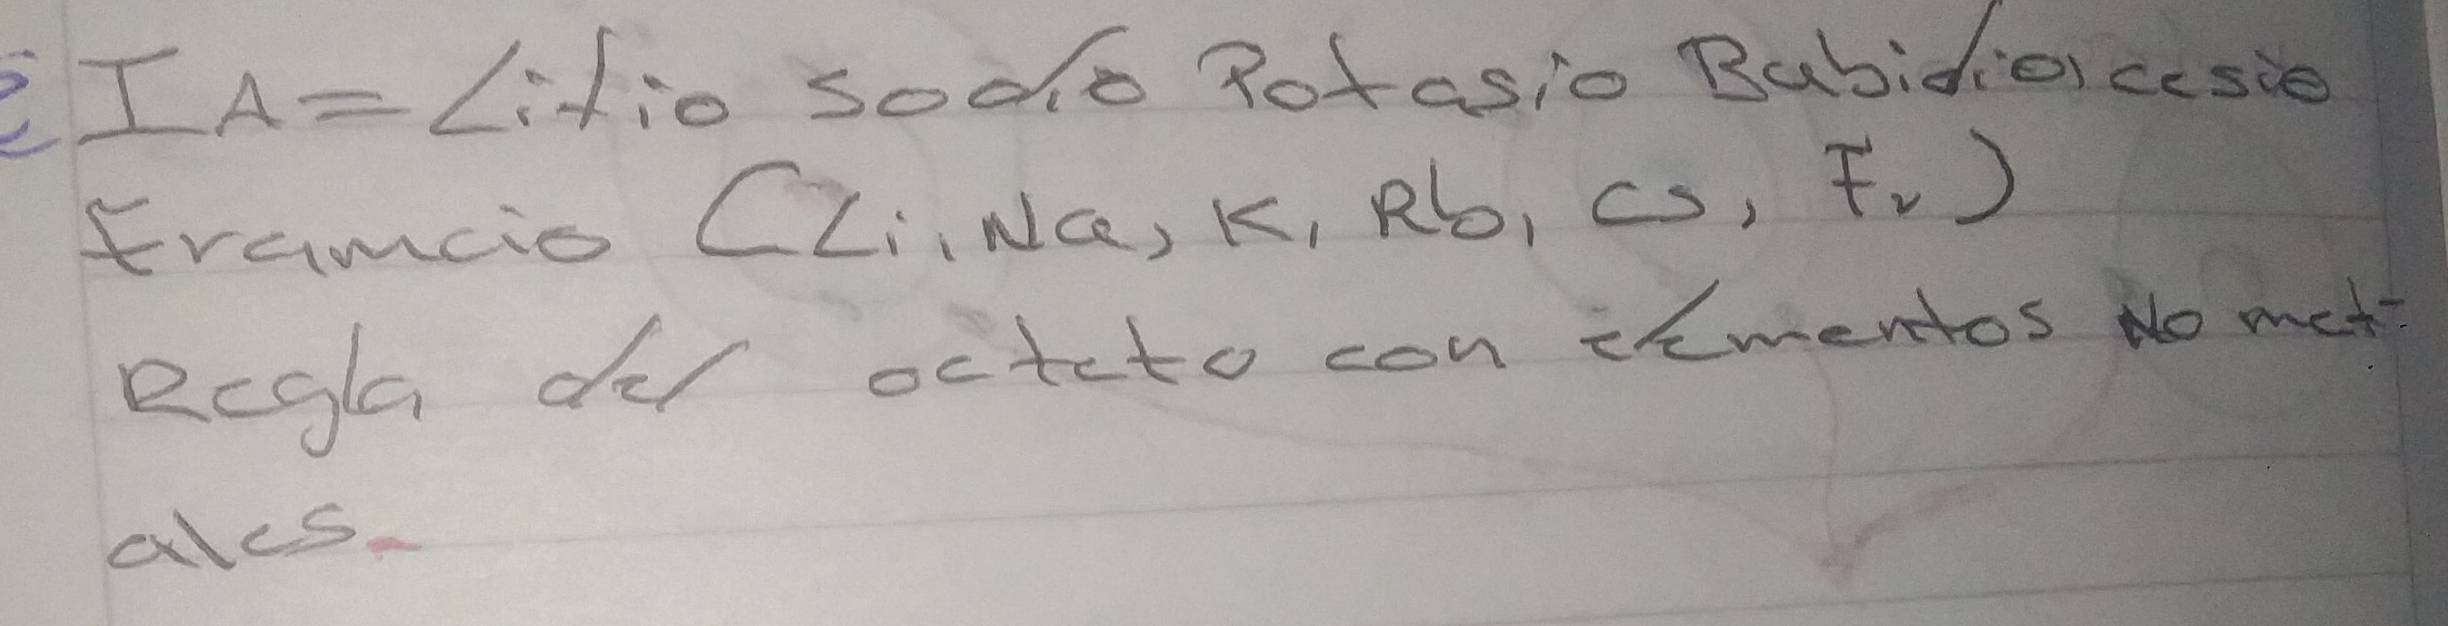 IA = Litio Sodio Potasio Rubidio, cesio
Francio (Li, Na, K, Rb, Cs, Fr)
Regla del octeto con elementos No met-
ales.